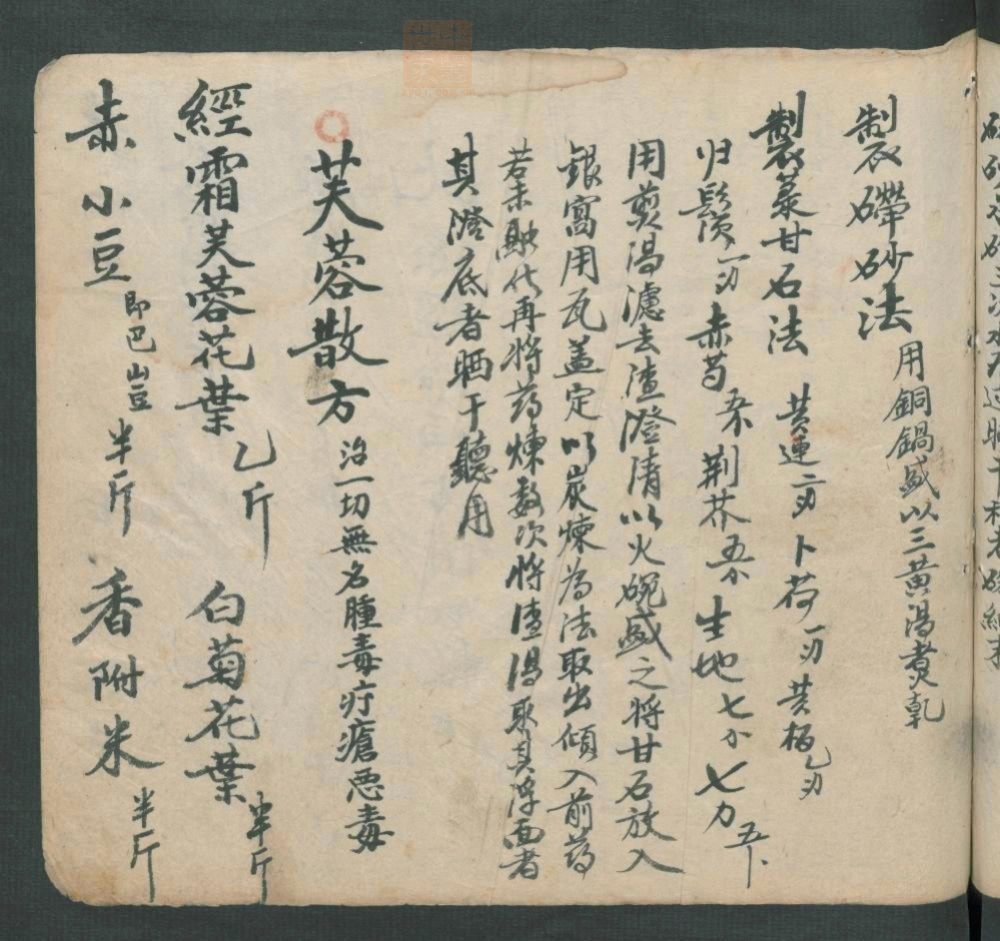 製硼砂法 用銅鍋盛以三黄湯煮乾
製蒸甘石法 黄連二刃 卜荷一刃 黄栢乙刃
归鬚一刃 赤芍五分 荆芥五分 生地七分 七力五卜
用煎湯濾去渣澄清以火碗盛之将甘石放入
銀窩用瓦盖定以炭煉為法取出傾入前药
若未融化再将药煉数次将渣湯取其浮面者
其澄底者晒干聽用
芙蓉散方 治一切無名腫毒疔瘡恶毒
經霜芙蓉花葉乙斤 白菊花葉半斤
赤小豆即巴山豆半斤 香附米半斤